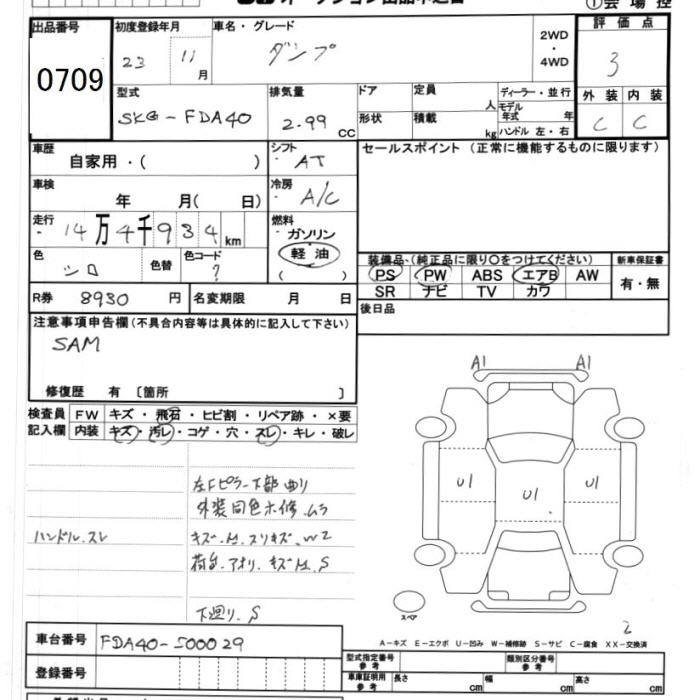 ①会場控
出品番号 初度登録年月 車名・グレード 評価点
0709 23 11月 ダンプ 2WD・4WD 3
型式 排気量 ドア 定員 人 ディーラー・並行 外装 内装
SKG-FDA40 2.99 CC 形状 積載 kg モデル年式 年 ハンドル 左・右 C C
車歴 自家用・( ) シフト AT セールスポイント(正常に機能するものに限ります)
車検 年 月( 日) 冷房 A/C
走行 14万4千934km 燃料 ガソリン
軽油
( )
色 シロ 色替 色コード ? 装備品(純正品に限り〇をつけてください) 新車保証書
PS PW ABS エアB AW 有・無
SR ナビ TV カワ
R券 8930円 名変期限 月 日 後日品
注意事項申告欄(不具合内容等は具体的に記入して下さい)
SAM
修復歴 有 〔箇所 〕
A1 A1
検査員 FW キズ・飛石・ヒビ割・リペア跡・×要
記入欄 内装 キズ・汚レ・コゲ・穴・スレ・キレ・破レ
左Fピラー下部曲リ
U1 U1 U1
外装同色ホ修.ムラ
ハンドル.スレ キズ.M.スリキズ.W2
荷台.アオリ.キズM.S
スペア
下廻リ.S
2
A-キズ E-エクボ U-凹み W-補修跡 S-サビ C-腐食 XX-交換済
車台番号 FDA40-500029
型式指定番号 参考 類別区分番号 参考
登録番号 車庫証明用 参考 長さ cm 幅 cm 高さ cm